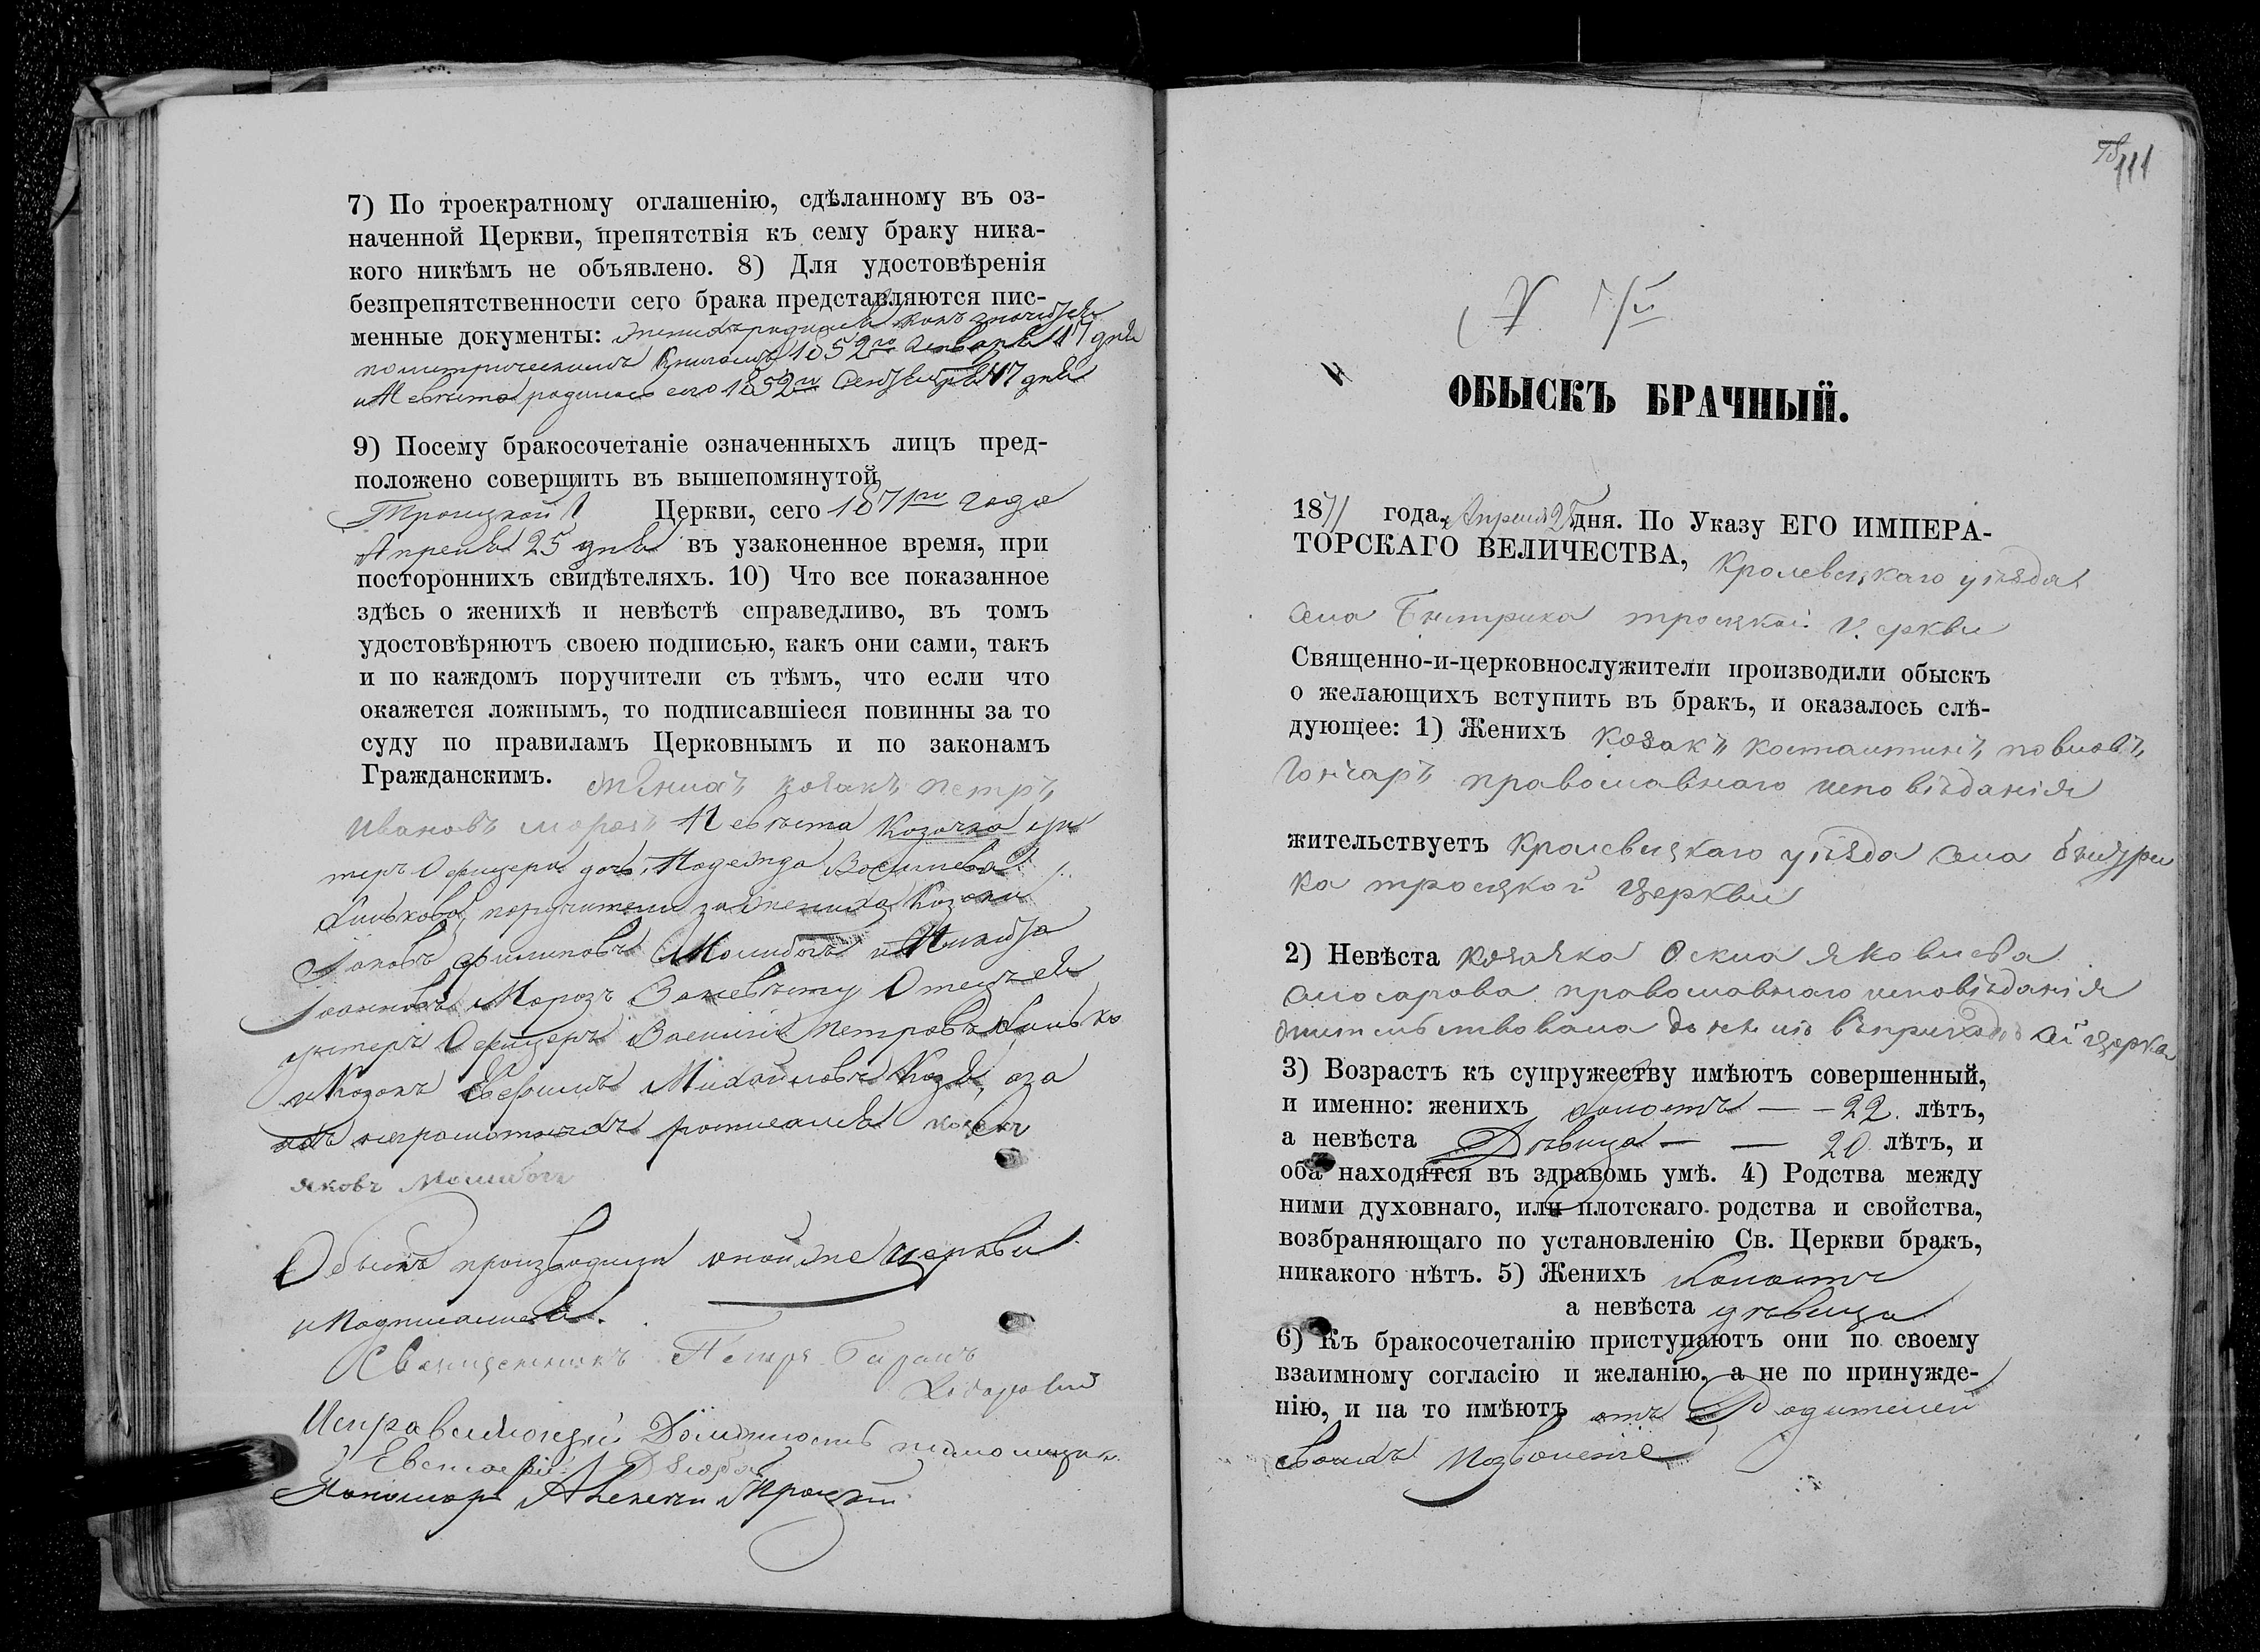 7) По троекратному оглашенію, сдѣланному въ оз-
наченной Церкви, препятствія къ сему браку ника-
кого никѣмъ не объявлено. 8) Для удостовѣренія
безпрепятственности сего брака представляются пис-
менные документы: женихъ родился какъ значится
по метрическимъ книгамъ 1852го Января 17 дня
и Невѣста родилась 1852го Сентября 17 дня
9) Посему бракосочетаніе означенныхъ лицъ пред-
положено совершить въ вышепомянутой
Троицкой Церкви, сего 1871го года
Апреля 25 дня въ узаконенное время, при
постороннихъ свидѣтеляхъ. 10) Что все показанное
здѣсь о женихѣ и невѣстѣ справедливо, въ томъ
удостовѣряютъ своею подписью, какъ они сами, такъ
и по каждомъ поручители съ тѣмъ, что если что
окажется ложнымъ, то подписавшіеся повинны за то
суду по правиламъ Церковнымъ и по законамъ
Гражданскимъ. Женихъ козакъ петръ
Ивановъ морозъ Невѣста Козачка ун
теръ Офицера дочь Надежда Васильева
поручители за жениха Козаки
Іаковъ Филиповъ и Никита
Іоанновъ Мороз За невѣсту Отец ея
унтеръ Офицеръ Василій Петровъ
и Козакъ Евфимъ Михайловъ а за
ихъ неграмотныхъ росписался козакъ
яковъ
Обыскъ производили оной же церкви
и подписались.
Священникъ Петръ
Исправляющій Должность псаломщика
Пономарь Алексей Троицкий
111
ОБЫСКЪ БРАЧНЫЙ.
1871 года, Апреля 25 дня. По Указу ЕГО ИМПЕРА-
ТОРСКАГО ВЕЛИЧЕСТВА, Кролевецкаго уѣзда
села Быстрика троецкой церкви
Священно-и-церковнослужители производили обыскъ
о желающихъ вступить въ бракъ, и оказалось слѣ-
дующее: 1) Женихъ козакъ костантинъ повловъ
гончаръ православнаго исповѣданія
жительствуетъ Кролевецкаго уѣзда села быстри
ка троецкой церкви
2) Невѣста козачка яковлева
слюсарова православнаго исповѣданія
жительствовала до селѣ въ приходѣ сей церкви
3) Возрастъ къ супружеству имѣютъ совершенный,
и именно: женихъ холостъ — - 22 лѣтъ,
а невѣста Дѣвица — — 20 лѣтъ, и
оба находятся въ здравомъ умѣ. 4) Родства между
ними духовнаго, или плотскаго родства и свойства,
возбраняющаго по установленію Св. Церкви бракъ,
никакого нѣтъ. 5) Женихъ холостъ
а невѣста дѣвица
6) Къ бракосочетанію приступаютъ они по своему
взаимному согласію и желанію, а не по принужде-
нію, и на то имѣютъ отъ Родителей
своихъ позволеніе